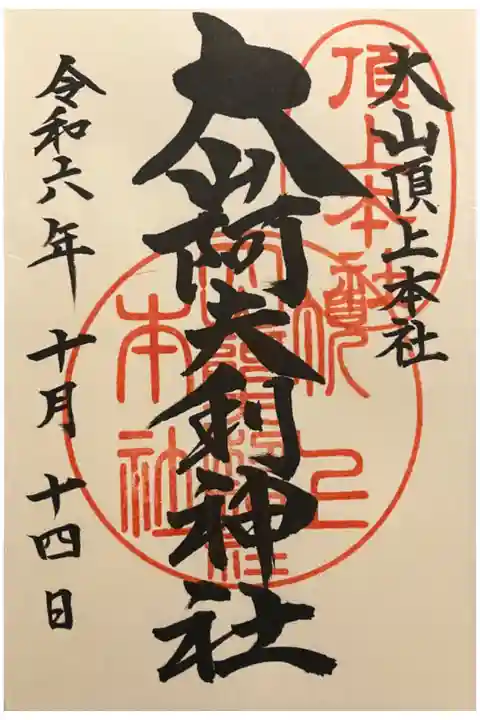 大山頂上本社
頂上本社
大山阿夫利神社
本社
令和六年 十月 十四日